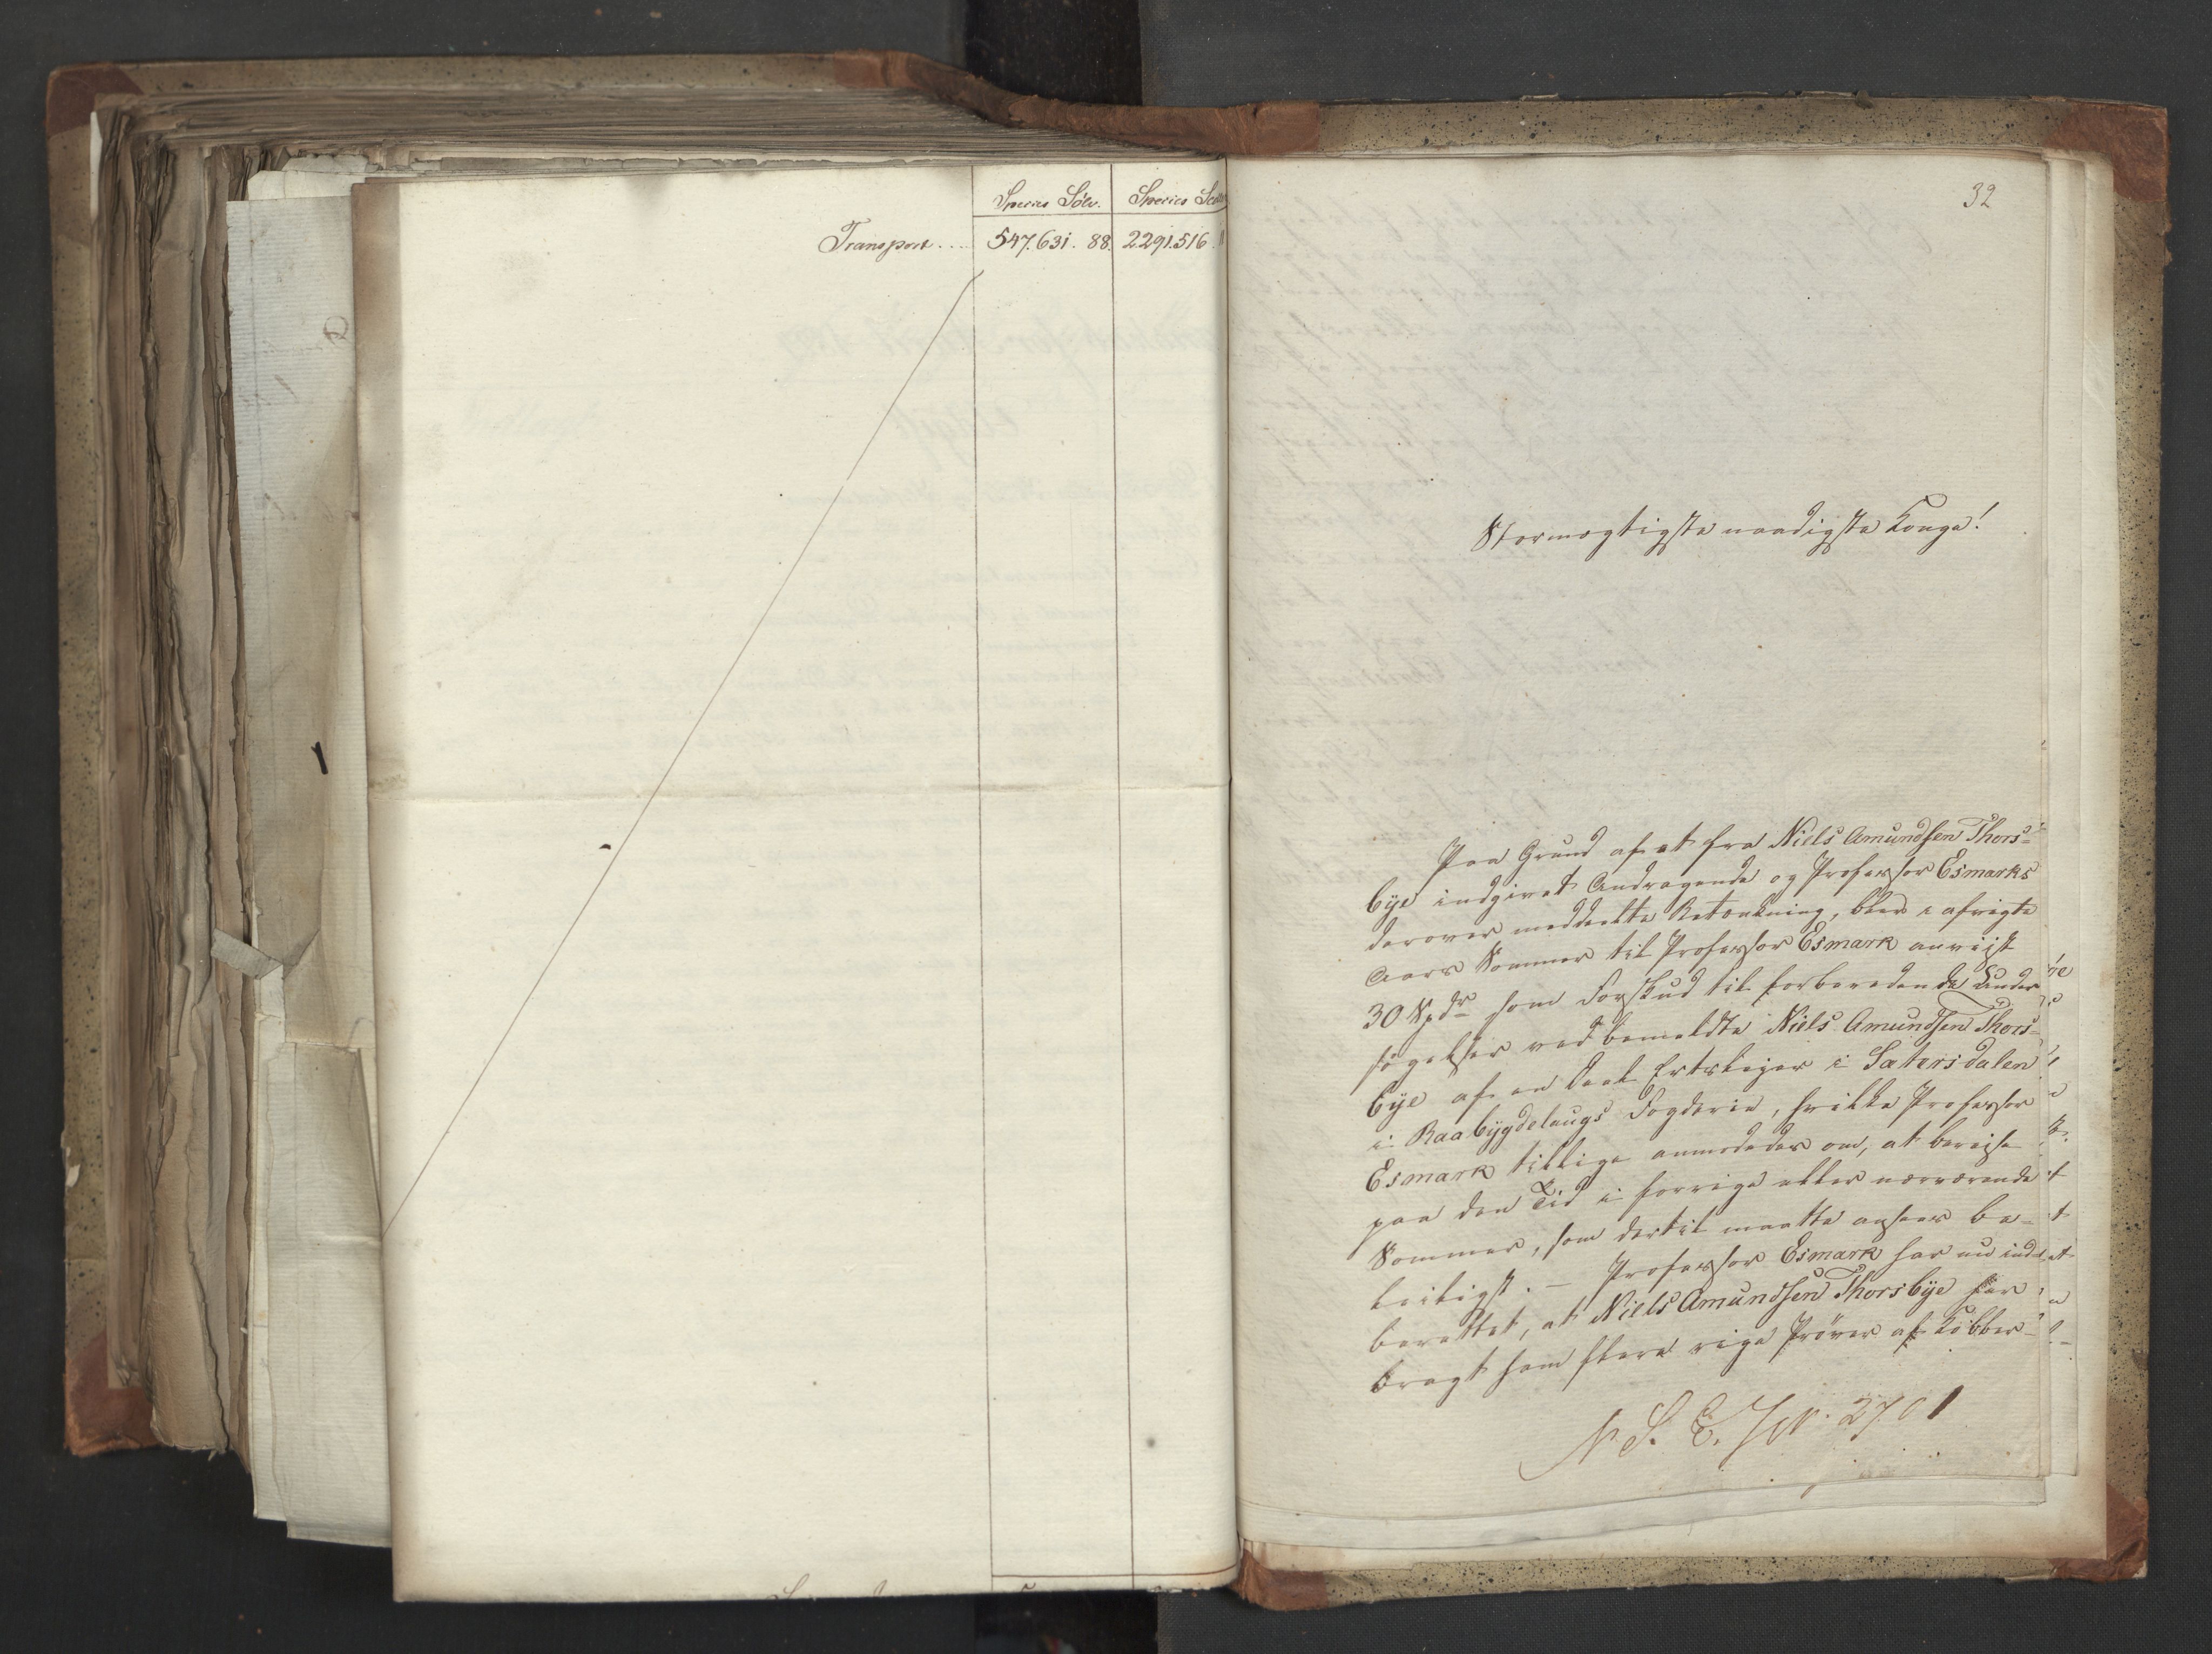 Species Sølv. Species Sedler
Transport.... 547.631. 88. 2.291.516.
32
Stormægtigste naadigste Konge!
Paa Grund af et fra Niels Amundsen Thors=
bÿe indgivet Andragende og Professor Esmarks
derover meddeelte Betænkning, blev i afvigte
Aars Sommer til Professor Esmark anviist
30 Spdr som Forskud til forberedende Under
søgelser ved bemeldte Niels Amundsen Thors=
bÿe af en Deel Ertsleier i Sætersdalen
i Raabÿgdelaugs Fogderie, hvilke Professor
Esmark tillige anmodedes om, at bereise
paa den Tid i forrige eller nærværende
Sommer, som dertil maatte ansees be=
leiligst. — Professor Esmark har nu ind=
berettet, at Niels Amundsen Thorsbÿe har
bragt ham flere rige Prøver af Kobber=
N. S. E. J N. 2701